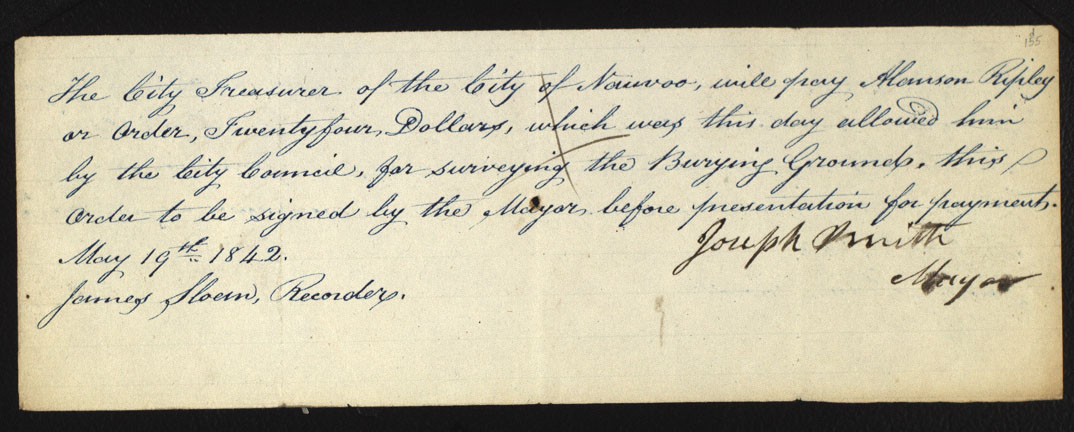 155
The City Treasurer of the City of Nauvoo, will pay Alanson Ripley
or order, Twentyfour, Dollars, which was this day allowed him
by the City Council, for surveying the Burying Ground, this
order to be signed by the Mayor before presentation for payment.
May 19th 1842.
Joseph Smith
Mayor
James Sloan, Recorder.